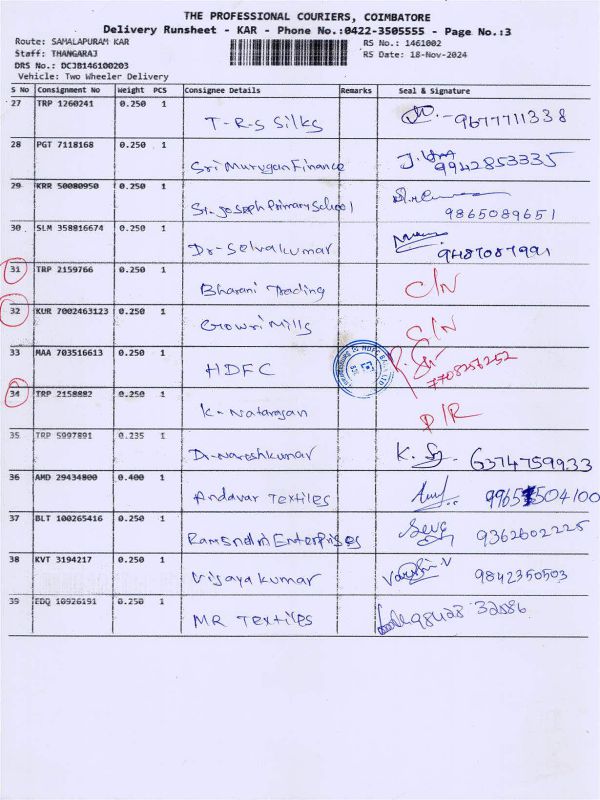 THE PROFESSIONAL COURIERS, COIMBATORE
Delivery Runsheet - KAR - Phone No.:0422-3505555 - Page No.:3
Route: SAMALAPURAM KAR RS No.: 1461002
Staff: THANGARAJ RS Date: 18-Nov-2024
DRS No.: DCJB146100203
Vehicle: Two Wheeler Delivery
S No Consignment No Weight PCS Consignee Details Remarks Seal & Signature
27 TRP 1260241 0.250 1
T-R-S Silks 9677711338
28 PGT 7118168 0.250 1
Sri Murugan Finance 9942853335
29 KRR 50080950 0.250 1
St. Joseph Primary School 9865089651
30 SLM 358816674 0.250 1
Dr-Selvakumar 9487087991
31 TRP 2159766 0.250 1
Bharani Trading C/N
32 KUR 7002463123 0.250 1
Gowri Mills C/N
33 MAA 703516613 0.250 1
HDFC 7708257252
34 TRP 2158882 0.250 1
K-Natarajan D/R
35 TRP 5997891 0.235 1
Dr-Nareshkumar K. 6374759933
36 AMD 29434800 0.400 1
Andavar Textiles 9965504100
37 BLT 100265416 0.250 1
Enterprises 9362602225
38 KVT 3194217 0.250 1
Vijayakumar 9842350503
39 EDQ 10926191 0.250 1
MR Textiles 98428 32886